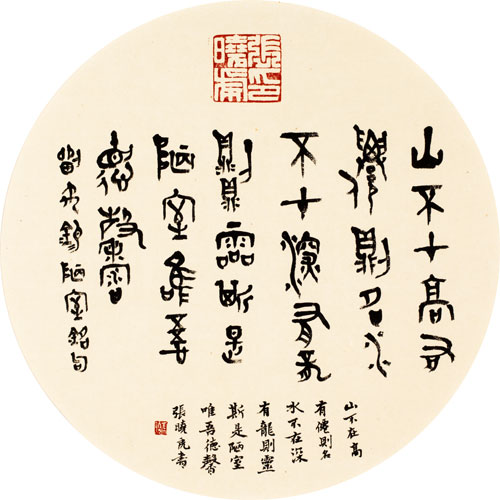 山不在高有
僊則名水
不在深有龍
則靈斯是
陋室唯吾
德馨
劉禹錫陋室銘句
山不在高
有僊則名
水不在深
有龍則靈
斯是陋室
唯吾德馨
張曉書